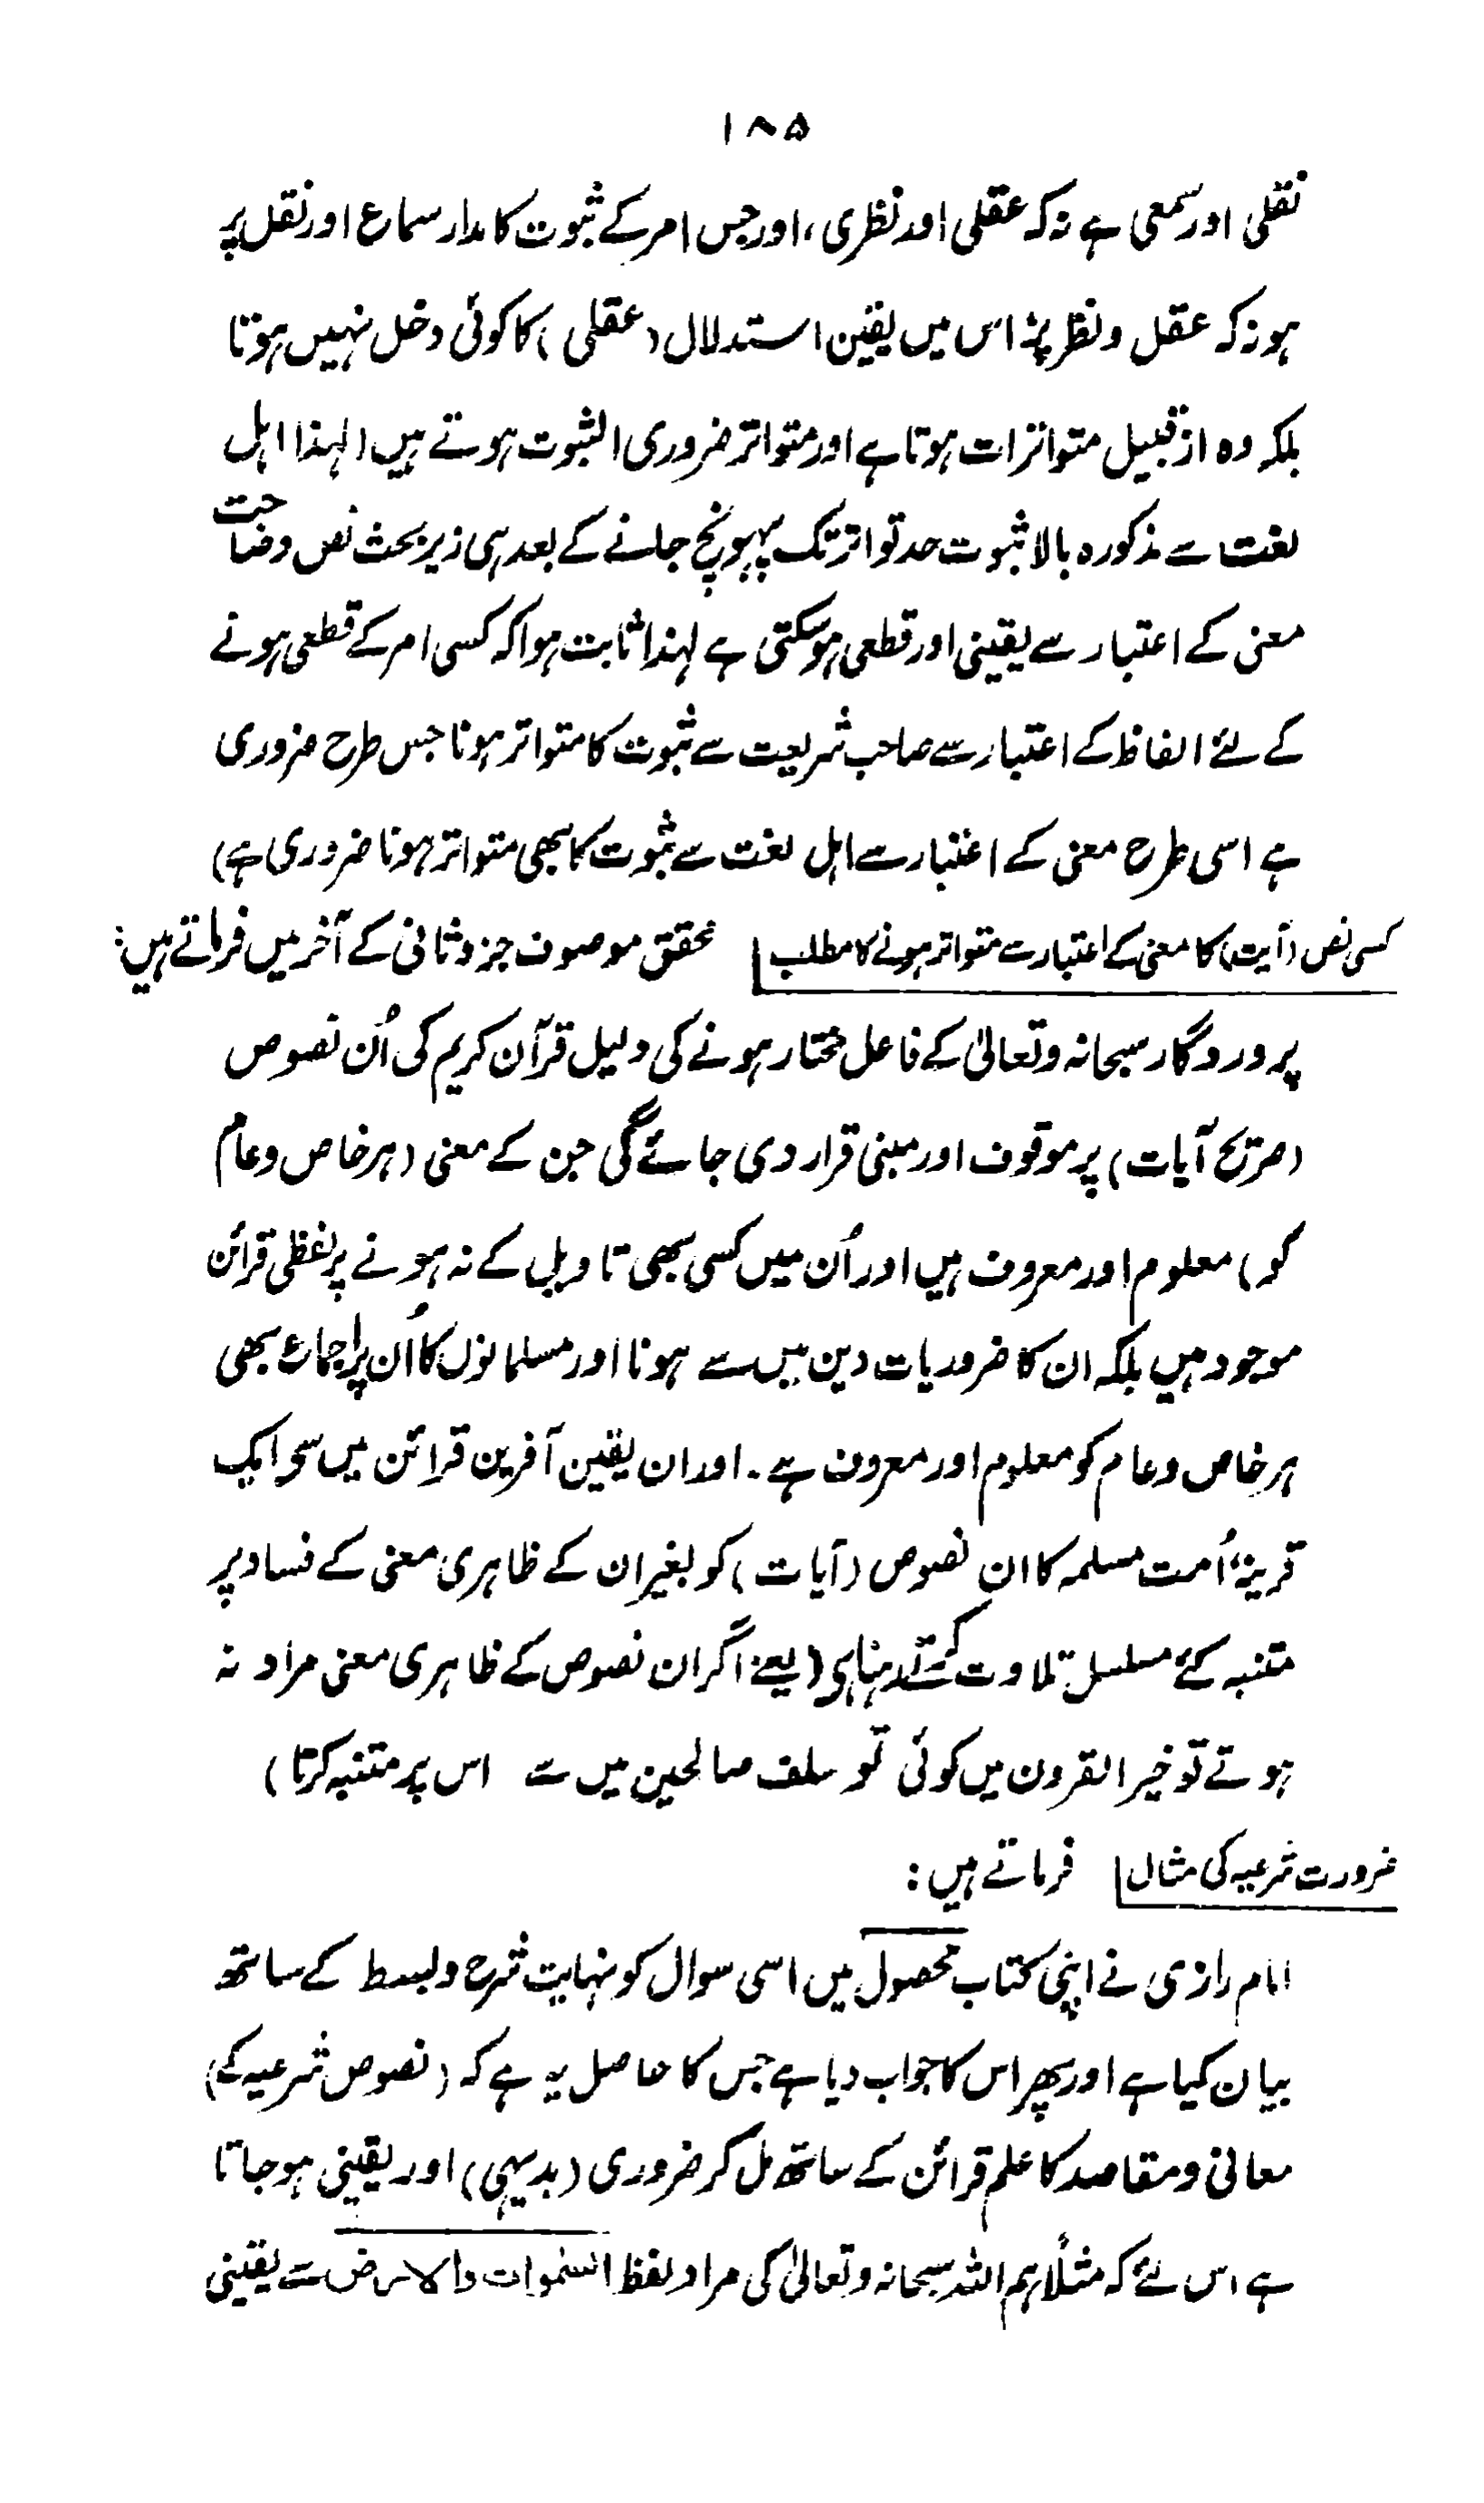 ۱۸۵
نقلی اور سمعی ہے نہ کہ عقلی اور نظری، اور جس امر کے ثبوت کا مدار سماع اور نقل پر
ہو نہ کہ عقل و نظر پر، اس میں یقین استدلال (عقلی) کا کوئی دخل نہیں ہوتا
بلکہ وہ از قبیل متواترات ہوتا ہے اور متواتر ضروری الثبوت ہوتے ہیں (لہٰذا اہل
لغت سے مذکورہ بالا ثبوت حد تواتر تک پہونچ جانے کے بعد ہی زیر بحث نص وضاحت
معنی کے اعتبار سے یقینی اور قطعی ہو سکتی ہے لہٰذا ثابت ہوا کہ کسی امر کے قطعی ہونے
کے لئے الفاظ کے اعتبار سے صاحب شریعت سے ثبوت کا متواتر ہونا جس طرح ضروری
ہے اسی طرح معنی کے اعتبار سے اہل لغت سے ثبوت کا بھی متواتر ہونا ضروری ہے)
کسی نص (آیت) کا معنی کے اعتبار سے متواتر ہونے کا مطلب محقق موصوف جزو ثانی کے آخر میں فرماتے ہیں:
پروردگار سبحانہ وتعالیٰ کے فاعل مختار ہونے کی دلیل قرآن کریم کی اُن نصوص
(صریح آیات) پر موقوف اور مبنی قرار دی جائے گی جن کے معنی (ہر خاص و عام
کو) معلوم اور معروف ہیں اور اُن میں کسی بھی تاویل کے نہ ہونے پر لفظی قرائن
موجود ہیں بلکہ ان کا ضروریات دین میں سے ہونا اور مسلمانوں کا اُن پر اجماع بھی
ہر خاص و عام کو معلوم اور معروف ہے۔ اور ان یقین آفرین قرائن میں سے ایک
قرینہ اُمت مسلمہ کا ان نصوص (آیات) کو بغیر ان کے ظاہری معنی کے فساد پر
متنبہ کئے مسلسل تلاوت کرتے رہنا ہے (یعنے اگر ان نصوص کے ظاہری معنی مراد نہ
ہوتے تو خیر القرون میں کوئی تو سلف صالحین میں سے اس پر متنبہ کرتا)
ضرورت شرعیہ کی مثال فرماتے ہیں:
امام رازی نے اپنی کتاب محصول میں اسی سوال کو نہایت شرح و بسط کے ساتھ
بیان کیا ہے اور پھر اس کا جواب دیا ہے جس کا حاصل یہ ہے کہ (نصوص شرعیہ کے)
معانی و مقاصد کا علم قرائن کے ساتھ مل کر ضروری (بدیہی) اور یقینی ہو جاتا
ہے اس لئے کہ مثلاً ہم اللہ سبحانہ وتعالیٰ کی مراد لفظ السموات والارض سے یقینی